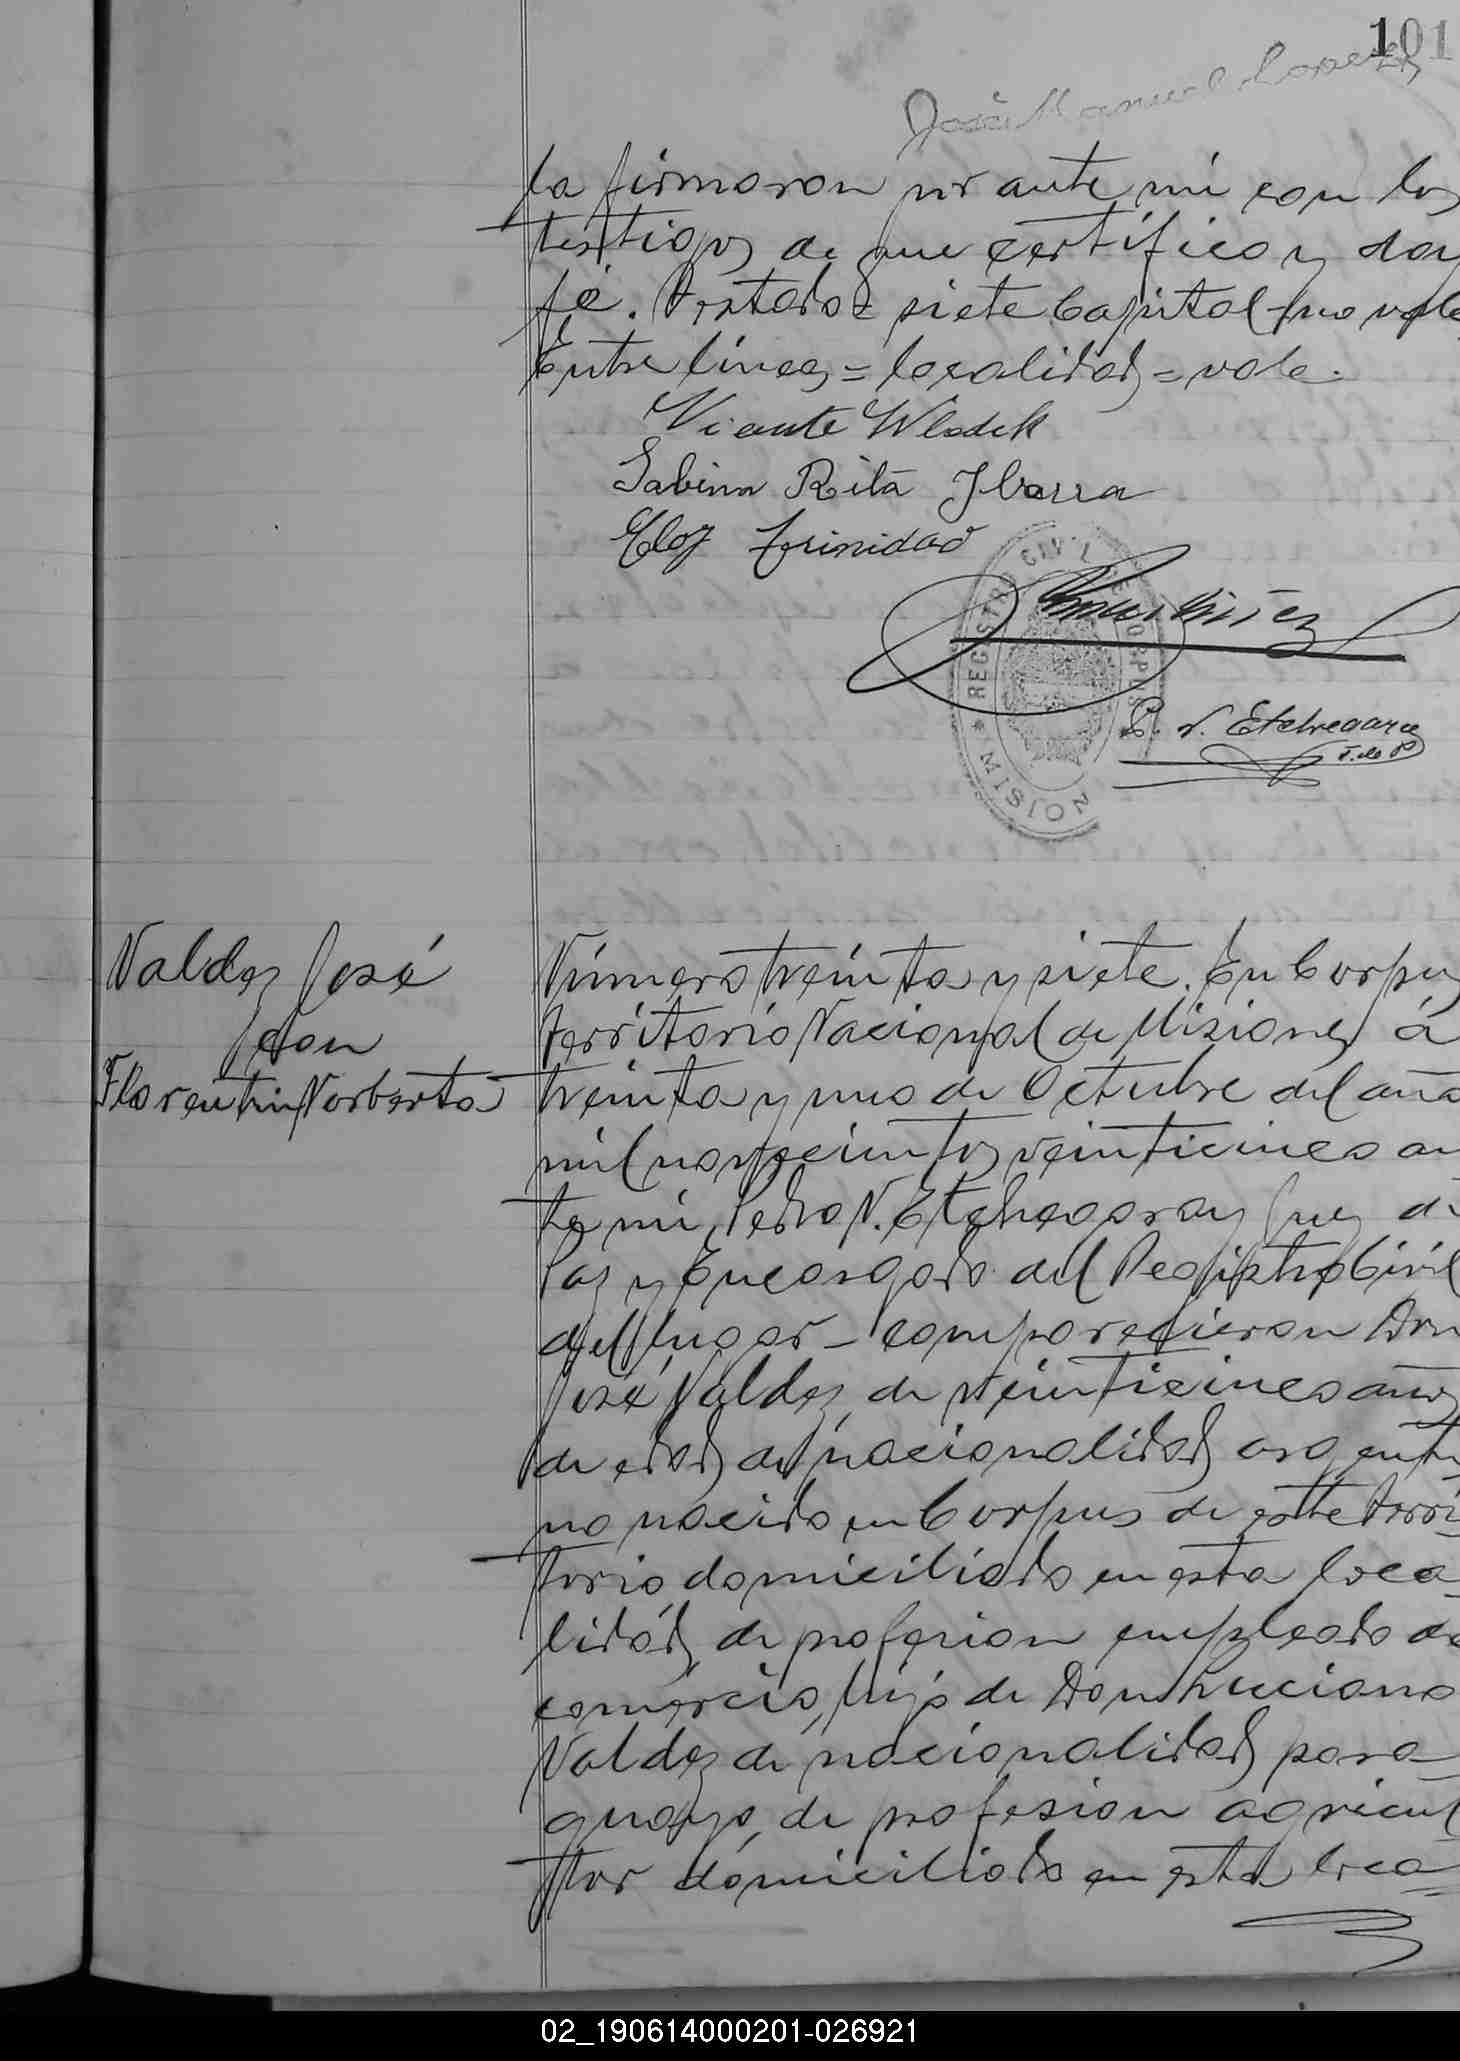 101
José Manuel Lopez
la firmaron por ante mi con los
testigos de que certifico y doy
fé. Testado = siete Capital = no vale
Entre líneas = localidad = vale.
Vicente Wlodek
Sabina Rita Ibarra
Eloy Trinidad
REGISTRO CIVIL DE CORPUS
* MISIONES *
P. N. Etchegaray
J. de P.
Valdez José
con
Florentin Norberta
Número treinta y siete. En Corpus
territorio Nacional de Misiones á
treinta y uno de Octubre del año
mil novecientos veinticinco an
te mi, Pedro N. Etchegaray Juez de
Paz y Encargado del Registro Civil
del lugar - comparecieron Don
José Valdez, de veinticinco años
de edad de nacionalidad argenti
no nacido en Corpus de este terri
torio domiciliado en esta loca
lidad, de profesion empleado de
comercio, hijo de Don Lucciano
Valdez de nacionalidad para
guayo, de profesion agricul
tor domiciliado en esta loca
02_190614000201-026921